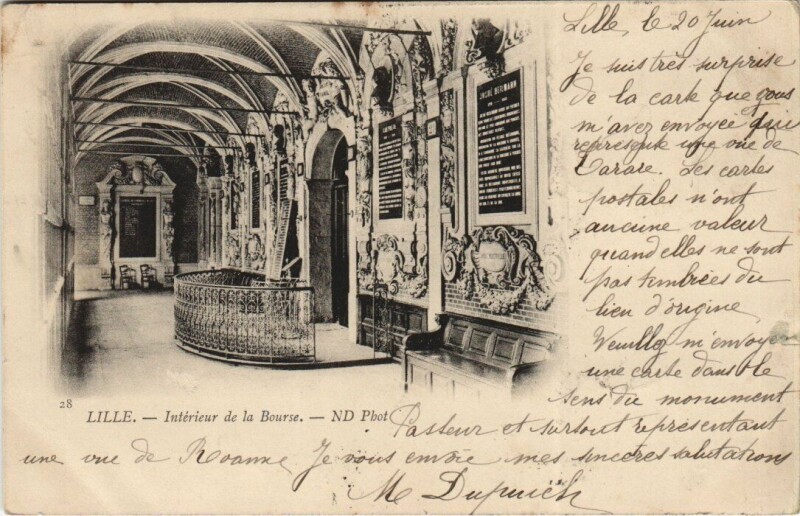 Lille, le 20 Juin
Je suis très surprise
de la carte que vous
m'avez envoyée qui
représente une vue de
Tarare. Les cartes
postales n'ont
aucune valeur
quand elles ne sont
pas timbrées du
lieu d'origine
Veuillez m'envoyer
une carte dans le
sens du monument
Pasteur et surtout représentant
une vue de Roanne Je vous envoie mes sincères salutations
28
LILLE. — Intérieur de la Bourse. — ND Phot